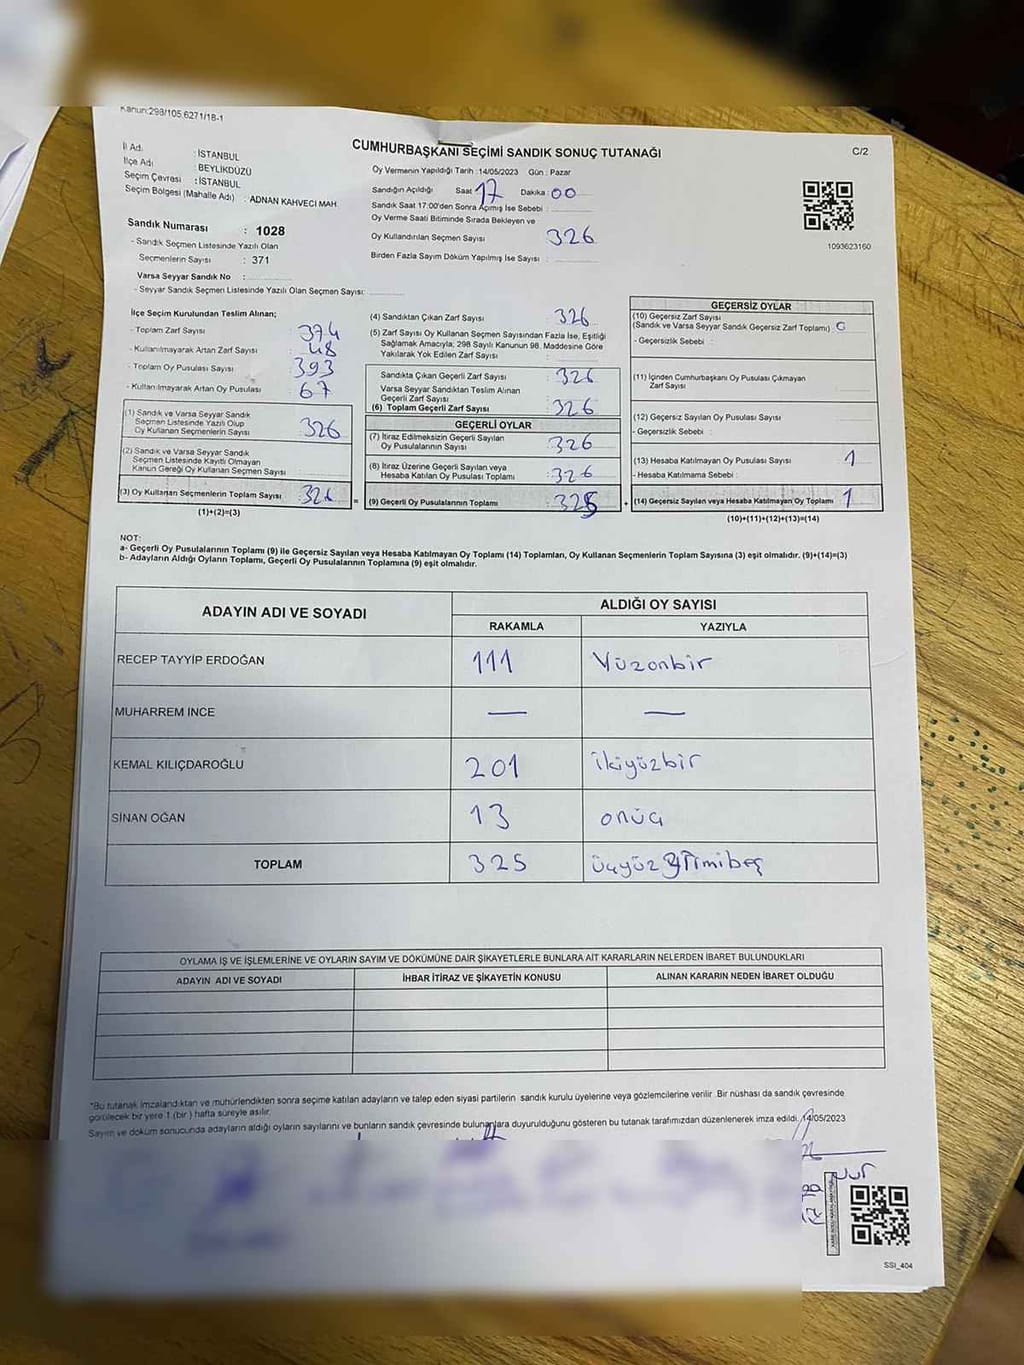 Kanun:298/105,6271/18-1
İl Adı : İSTANBUL
İlçe Adı : BEYLİKDÜZÜ
Seçim Çevresi : İSTANBUL
Seçim Bölgesi (Mahalle Adı) : ADNAN KAHVECİ MAH.
Sandık Numarası : 1028
- Sandık Seçmen Listesinde Yazılı Olan
Seçmenlerin Sayısı : 371
Varsa Seyyar Sandık No :
- Seyyar Sandık Seçmen Listesinde Yazılı Olan Seçmen Sayısı:
CUMHURBAŞKANI SEÇİMİ SANDIK SONUÇ TUTANAĞI
Oy Vermenin Yapıldığı Tarih :14/05/2023 Gün : Pazar
Sandığın Açıldığı Saat 17 Dakika : 00
Sandık Saat 17:00'den Sonra Açımış İse Sebebi :
Oy Verme Saati Bitiminde Sırada Bekleyen ve
Oy Kullandırılan Seçmen Sayısı 326
Birden Fazla Sayım Döküm Yapılmış İse Sayısı :
C/2
1093623160
İlçe Seçim Kurulundan Teslim Alınan;
- Toplam Zarf Sayısı : 374
- Kullanılmayarak Artan Zarf Sayısı : 48
- Toplam Oy Pusulası Sayısı : 393
- Kullanılmayarak Artan Oy Pusulası : 67
(1) Sandık ve Varsa Seyyar Sandık
Seçmen Listesinde Yazılı Olup
Oy Kullanan Seçmenlerin Sayısı : 326
(2) Sandık ve Varsa Seyyar Sandık
Seçmen Listesinde Kayıtlı Olmayan
Kanun Gereği Oy Kullanan Seçmen Sayısı :
(3) Oy Kullanan Seçmenlerin Toplam Sayısı : 326 =
(1)+(2)=(3)
(4) Sandıktan Çıkan Zarf Sayısı : 326
(5) Zarf Sayısı Oy Kullanan Seçmen Sayısından Fazla İse, Eşitliği
Sağlamak Amacıyla, 298 Sayılı Kanunun 98. Maddesine Göre
Yakılarak Yok Edilen Zarf Sayısı :
Sandıkta Çıkan Geçerli Zarf Sayısı : 326
Varsa Seyyar Sandıktan Teslim Alınan
Geçerli Zarf Sayısı :
(6) Toplam Geçerli Zarf Sayısı : 326
GEÇERLİ OYLAR
(7) İtiraz Edilmeksizin Geçerli Sayılan
Oy Pusulalarının Sayısı : 326
(8) İtiraz Üzerine Geçerli Sayılan veya
Hesaba Katılan Oy Pusulaları Toplamı : 326
(9) Geçerli Oy Pusulalarının Toplamı : 325 +
GEÇERSİZ OYLAR
(10) Geçersiz Zarf Sayısı
(Sandık ve Varsa Seyyar Sandık Geçersiz Zarf Toplamı) : 0
- Geçersizlik Sebebi :
(11) İçinden Cumhurbaşkanı Oy Pusulası Çıkmayan
Zarf Sayısı
(12) Geçersiz Sayılan Oy Pusulası Sayısı
- Geçersizlik Sebebi :
(13) Hesaba Katılmayan Oy Pusulası Sayısı 1
- Hesaba Katılmama Sebebi :
(14) Geçersiz Sayılan veya Hesaba Katılmayan Oy Toplamı 1
(10)+(11)+(12)+(13)=(14)
NOT:
a- Geçerli Oy Pusulalarının Toplamı (9) ile Geçersiz Sayılan veya Hesaba Katılmayan Oy Toplamı (14) Toplamları, Oy Kullanan Seçmenlerin Toplam Sayısına (3) eşit olmalıdır. (9)+(14)=(3)
b- Adayların Aldığı Oyların Toplamı, Geçerli Oy Pusulalarının Toplamına (9) eşit olmalıdır.
ADAYIN ADI VE SOYADI ALDIĞI OY SAYISI
RAKAMLA YAZIYLA
RECEP TAYYİP ERDOĞAN 111 Yüzonbir
MUHARREM İNCE — —
KEMAL KILIÇDAROĞLU 201 ikiyüzbir
SİNAN OĞAN 13 onüç
TOPLAM 325 üçyüzyirmibeş
OYLAMA İŞ VE İŞLEMLERİNE VE OYLARIN SAYIM VE DÖKÜMÜNE DAİR ŞİKAYETLERLE BUNLARA AİT KARARLARIN NELERDEN İBARET BULUNDUKLARI
ADAYIN ADI VE SOYADI İHBAR İTİRAZ VE ŞİKAYETİN KONUSU ALINAN KARARIN NEDEN İBARET OLDUĞU
*Bu tutanak imzalandıktan ve mühürlendikten sonra seçime katılan adayların ve talep eden siyasi partilerin sandık kurulu üyelerine veya gözlemcilerine verilir. Bir nüshası da sandık çevresinde
görülecek bir yere 1 (bir) hafta süreyle asılır.
Sayım ve döküm sonucunda adayların aldığı oyların sayılarını ve bunların sandık çevresinde bulunanlara duyurulduğunu gösteren bu tutanak tarafımızdan düzenlenerek imza edildi. 14/05/2023
SSI_404